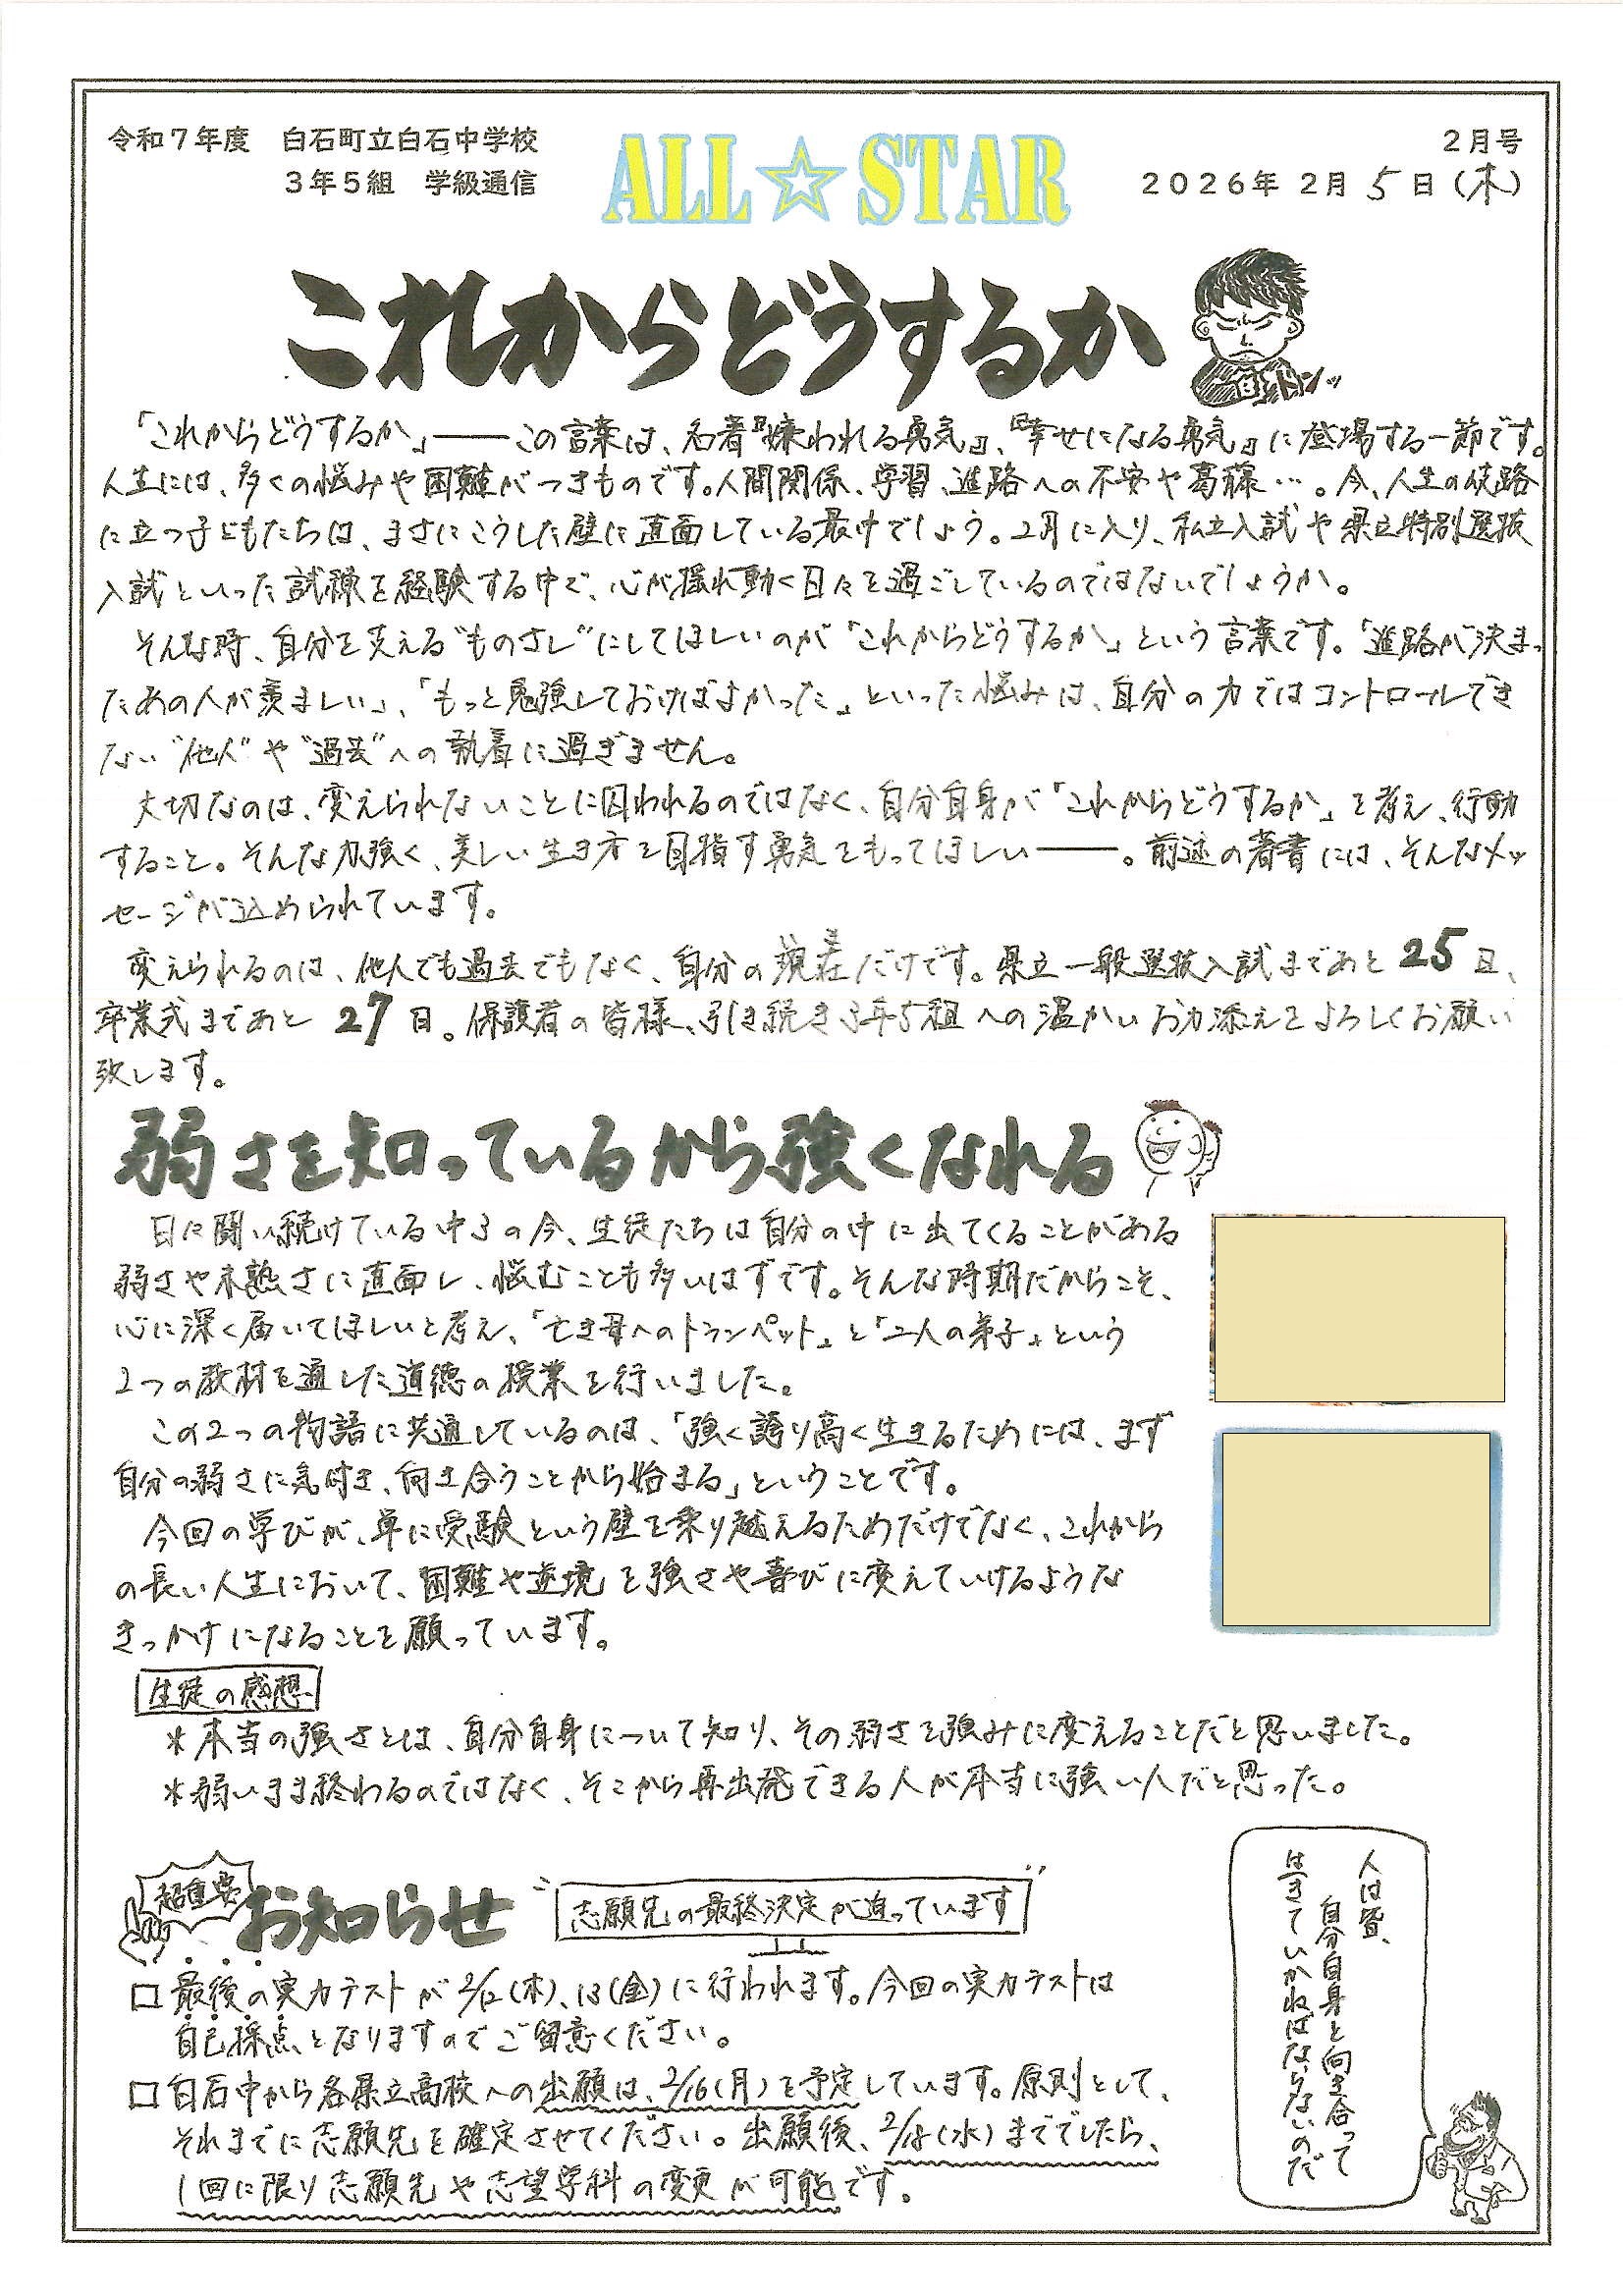 令和７年度　白石町立白石中学校
３年５組　学級通信
ALL☆STAR
２月号
２０２６年 ２月 5 日（木）
これからどうするか
ドンッ
「これからどうするか」――この言葉は、名著『嫌われる勇気』、『幸せになる勇気』に登場する一節です。
人生には、多くの悩みや困難がつきものです。人間関係、学習、進路への不安や葛藤…。今、人生の岐路
に立つ子どもたちは、まさにこうした壁に直面している最中でしょう。2月に入り、私立入試や県立特別選抜
入試といった試練を経験する中で、心が揺れ動く日々を過ごしているのではないでしょうか。
そんな時、自分を支える"ものさし"にしてほしいのが「これからどうするか」という言葉です。「進路が決まっ
たあの人が羨ましい」、「もっと勉強しておけばよかった」といった悩みは、自分の力ではコントロールでき
ない"他人"や"過去"への執着に過ぎません。
大切なのは、変えられないことに囚われるのではなく、自分自身が「これからどうするか」を考え、行動
すること。そんな力強く、美しい生き方を目指す勇気をもってほしい――。前述の著書には、そんなメッ
セージが込められています。
変えられるのは、他人でも過去でもなく、自分の現在だけです。県立一般選抜入試まであと 25 日、
卒業式まであと 27 日。保護者の皆様、引き続き3年5組への温かいお力添えをよろしくお願い
致します。
弱さを知っているから強くなれる
日に闘い続けている中3の今、生徒たちは自分の中に出てくることがある
弱さや未熟さに直面し、悩むことも多いはずです。そんな時期だからこそ、
心に深く届いてほしいと考え、「亡き母へのトランペット」と「二人の弟子」という
2つの教材を通した道徳の授業を行いました。
この2つの物語に共通しているのは、「強く誇り高く生きるためには、まず
自分の弱さに気付き、向き合うことから始まる」ということです。
今回の学びが、単に受験という壁を乗り越えるためだけでなく、これから
の長い人生において、困難や逆境を強さや喜びに変えていけるような
きっかけになることを願っています。
生徒の感想
＊本当の強さとは、自分自身について知り、その弱さを強みに変えることだと思いました。
＊弱いまま終わるのではなく、そこから再出発できる人が本当に強い人だと思った。
超重要
お知らせ
志願先の最終決定が迫っています
□ 最後の実力テストが2/12(木)、13(金)に行われます。今回の実力テストは
自己採点となりますのでご留意ください。
□ 白石中から各県立高校への出願は、2/16(月)を予定しています。原則として、
それまでに志願先を確定させてください。出願後、2/18(水)まででしたら、
1回に限り志願先や志望学科の変更が可能です。
人は皆、
自分自身と向き合って
生きていかねばならないのだ